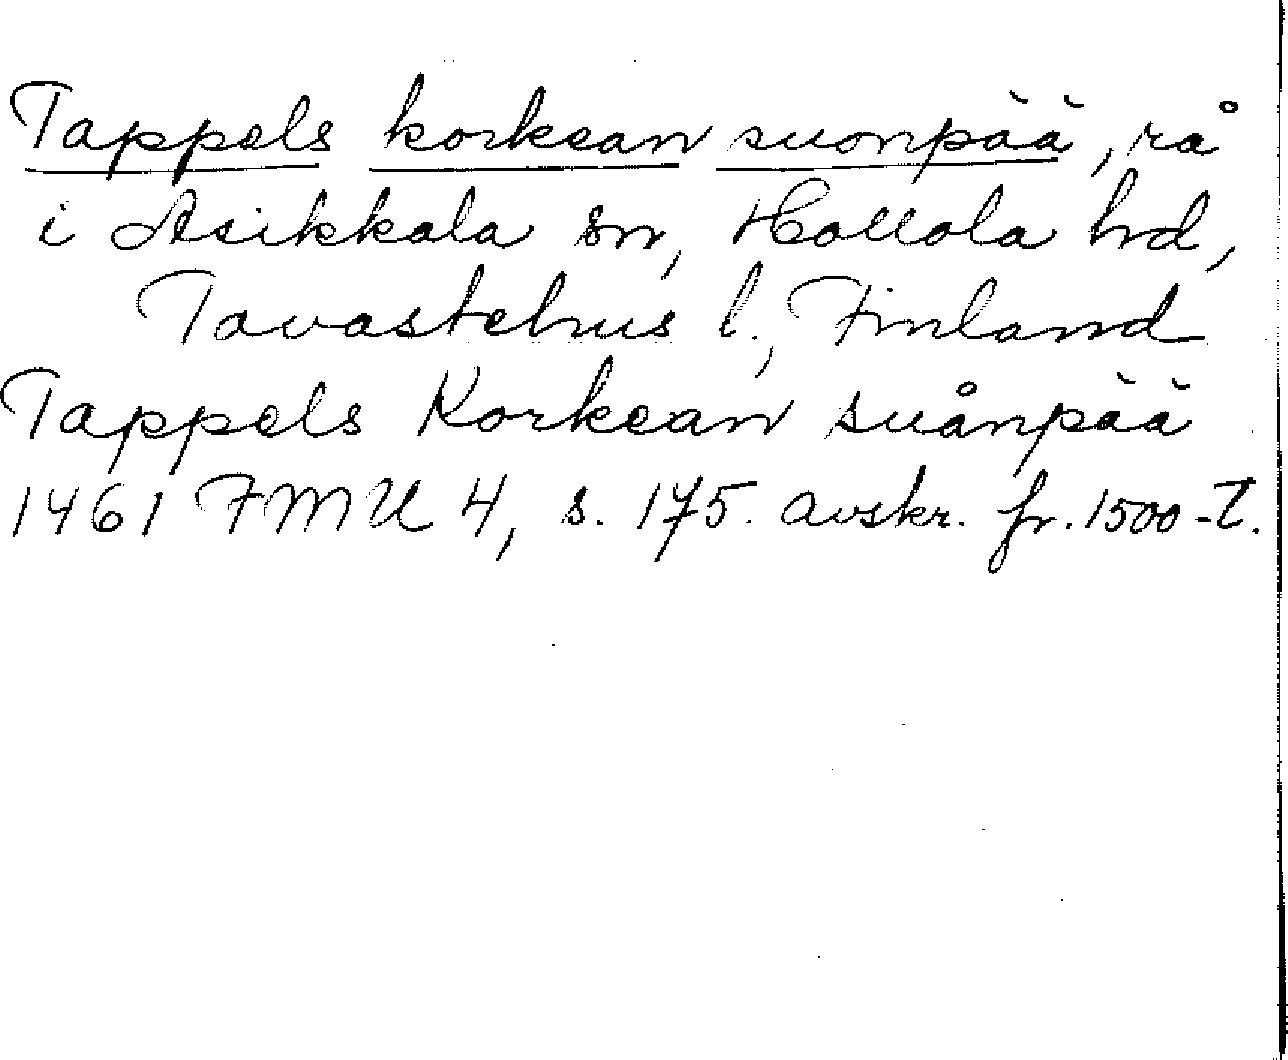 Tappels korkean suonpää, rå
i Asikkala sn, Hollola hd,
Tavastehus l., Finland
Tappels Korkean suånpää
1461 FMU 4, s. 175. avskr. fr. 1500-t.